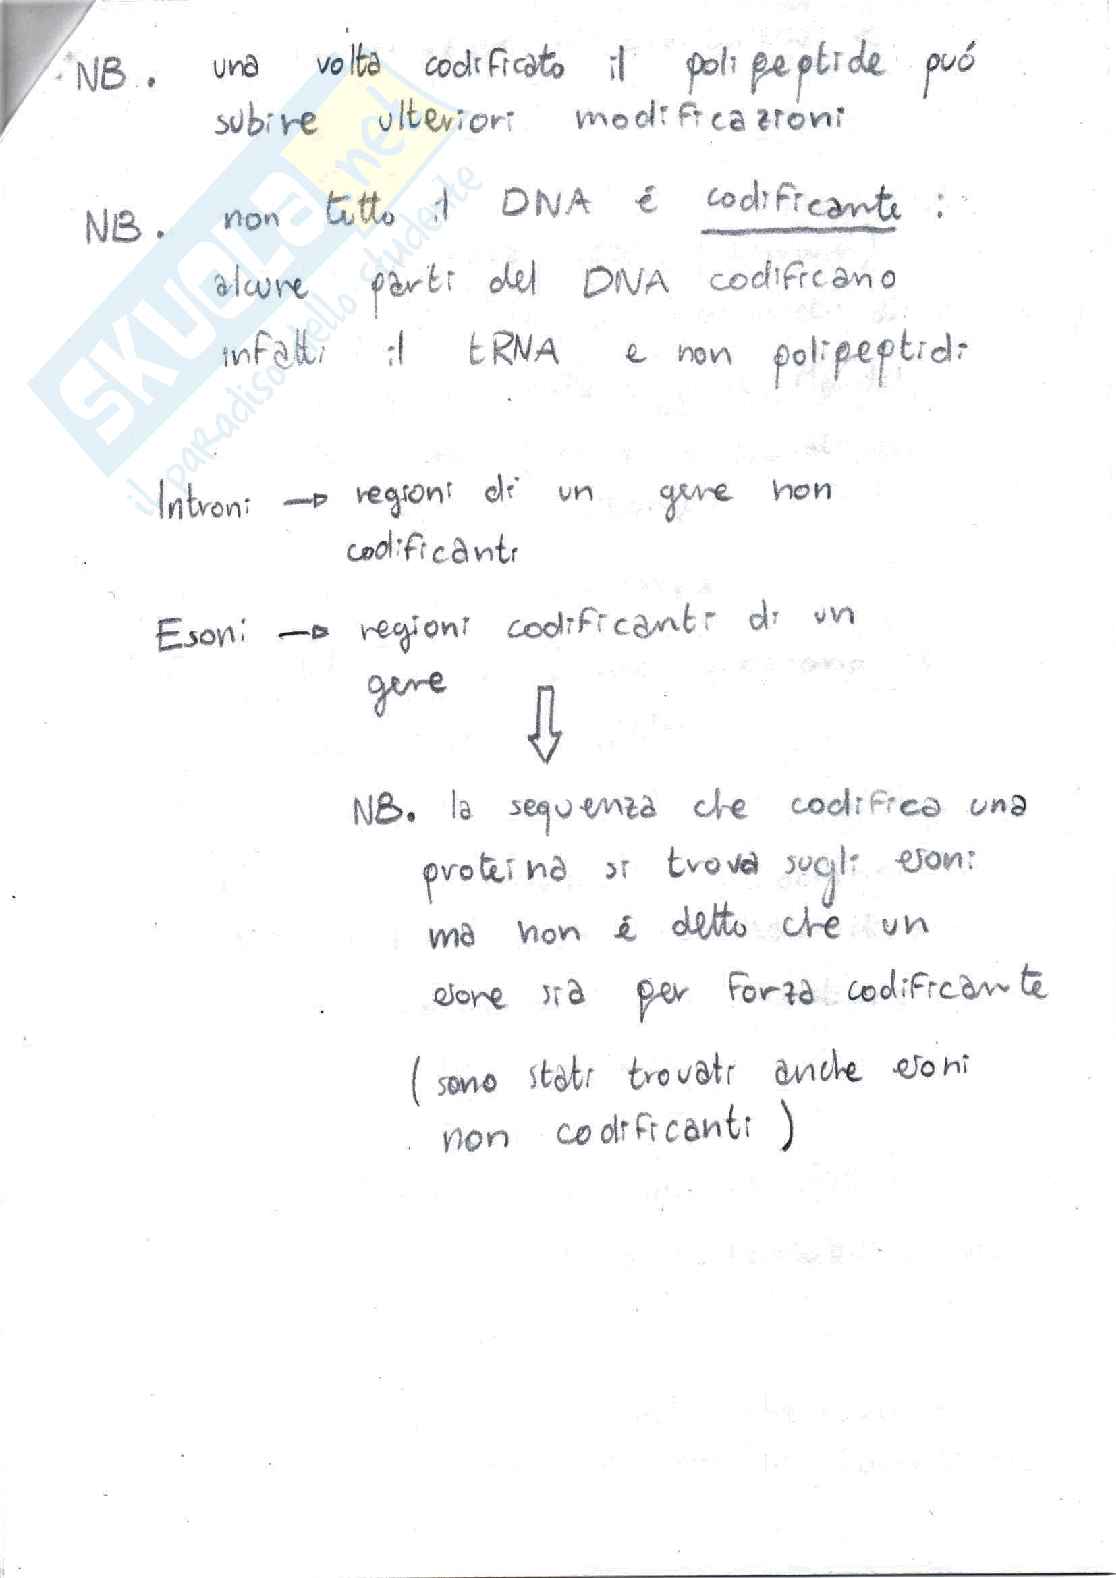 NB. una volta codificato il polipeptide puó
subire ulteriori modificazioni
NB. non tutto il DNA é codificante :
alcune parti del DNA codificano
infatti il tRNA e non polipeptidi
Introni → regioni di un gene non
codificanti
Esoni → regioni codificanti di un
gene
⇓
NB. la sequenza che codifica una
proteina si trova sugli esoni
ma non é detto che un
esone sia per forza codificante
(sono stati trovati anche esoni
non codificanti)
SKUOLA.net
il paradiso dello studente